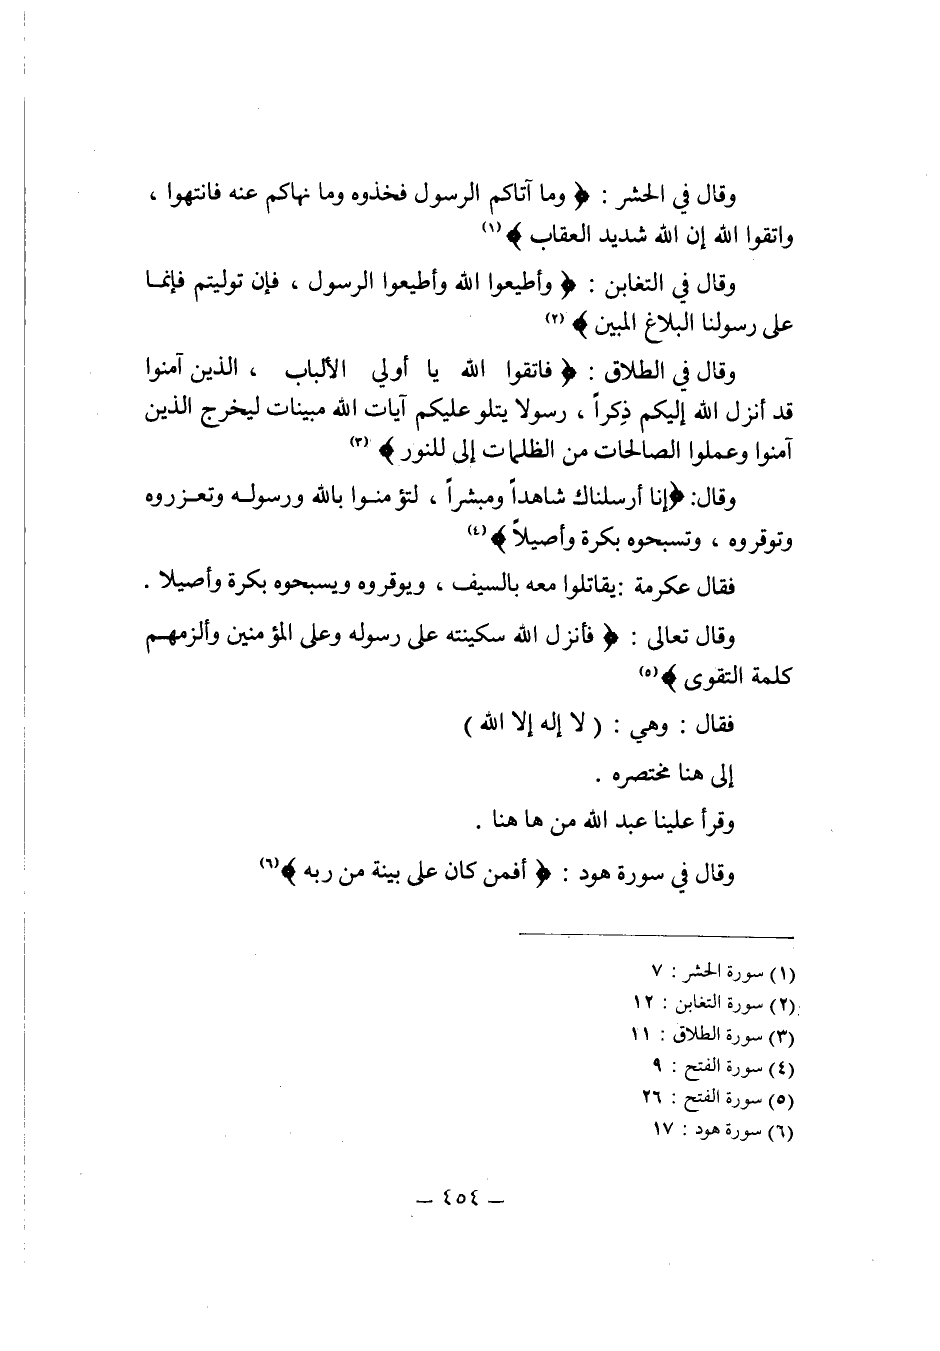 وقال في الحشر : ﴿ وما آتاكم الرسول فخذوه وما نهاكم عنه فانتهوا ،
واتقوا الله إن الله شديد العقاب ﴾ (١)
وقال في التغابن : ﴿ وأطيعوا الله وأطيعوا الرسول ، فإن توليتم فإنمـا
على رسولنا البلاغ المبين ﴾ (٢)
وقال في الطلاق : ﴿ فاتقوا الله يا أولي الألباب ، الذين آمنوا
قد أنزل الله إليكم ذِكراً ، رسولا يتلو عليكم آيات الله مبينات ليخرج الذين
آمنوا وعملوا الصالحات من الظلمات إلى للنور ﴾ (٣)
وقال: ﴿إنا أرسلناك شاهداً ومبشراً ، لتؤمنـوا بالله ورسولـه وتعـزروه
وتوقروه ، وتسبحوه بكرة وأصيلاً ﴾ (٤)
فقال عكرمة :يقاتلوا معه بالسيف ، ويوقروه ويسبحوه بكرة وأصيلا .
وقال تعالى : ﴿ فأنزل الله سكينته على رسوله وعلى المؤمنين وألزمهـم
كلمة التقوى ﴾ (٥)
فقال : وهي : ( لا إله إلا الله )
إلى هنا مختصره .
وقرأ علينا عبد الله من ها هنا .
وقال في سورة هود : ﴿ أفمن كان على بينة من ربه ﴾ (٦)
(١) سورة الحشر : ٧
(٢) سورة التغابن : ١٢
(٣) سورة الطلاق : ١١
(٤) سورة الفتح : ٩
(٥) سورة الفتح : ٢٦
(٦) سورة هود : ١٧
— ٤٥٤ —